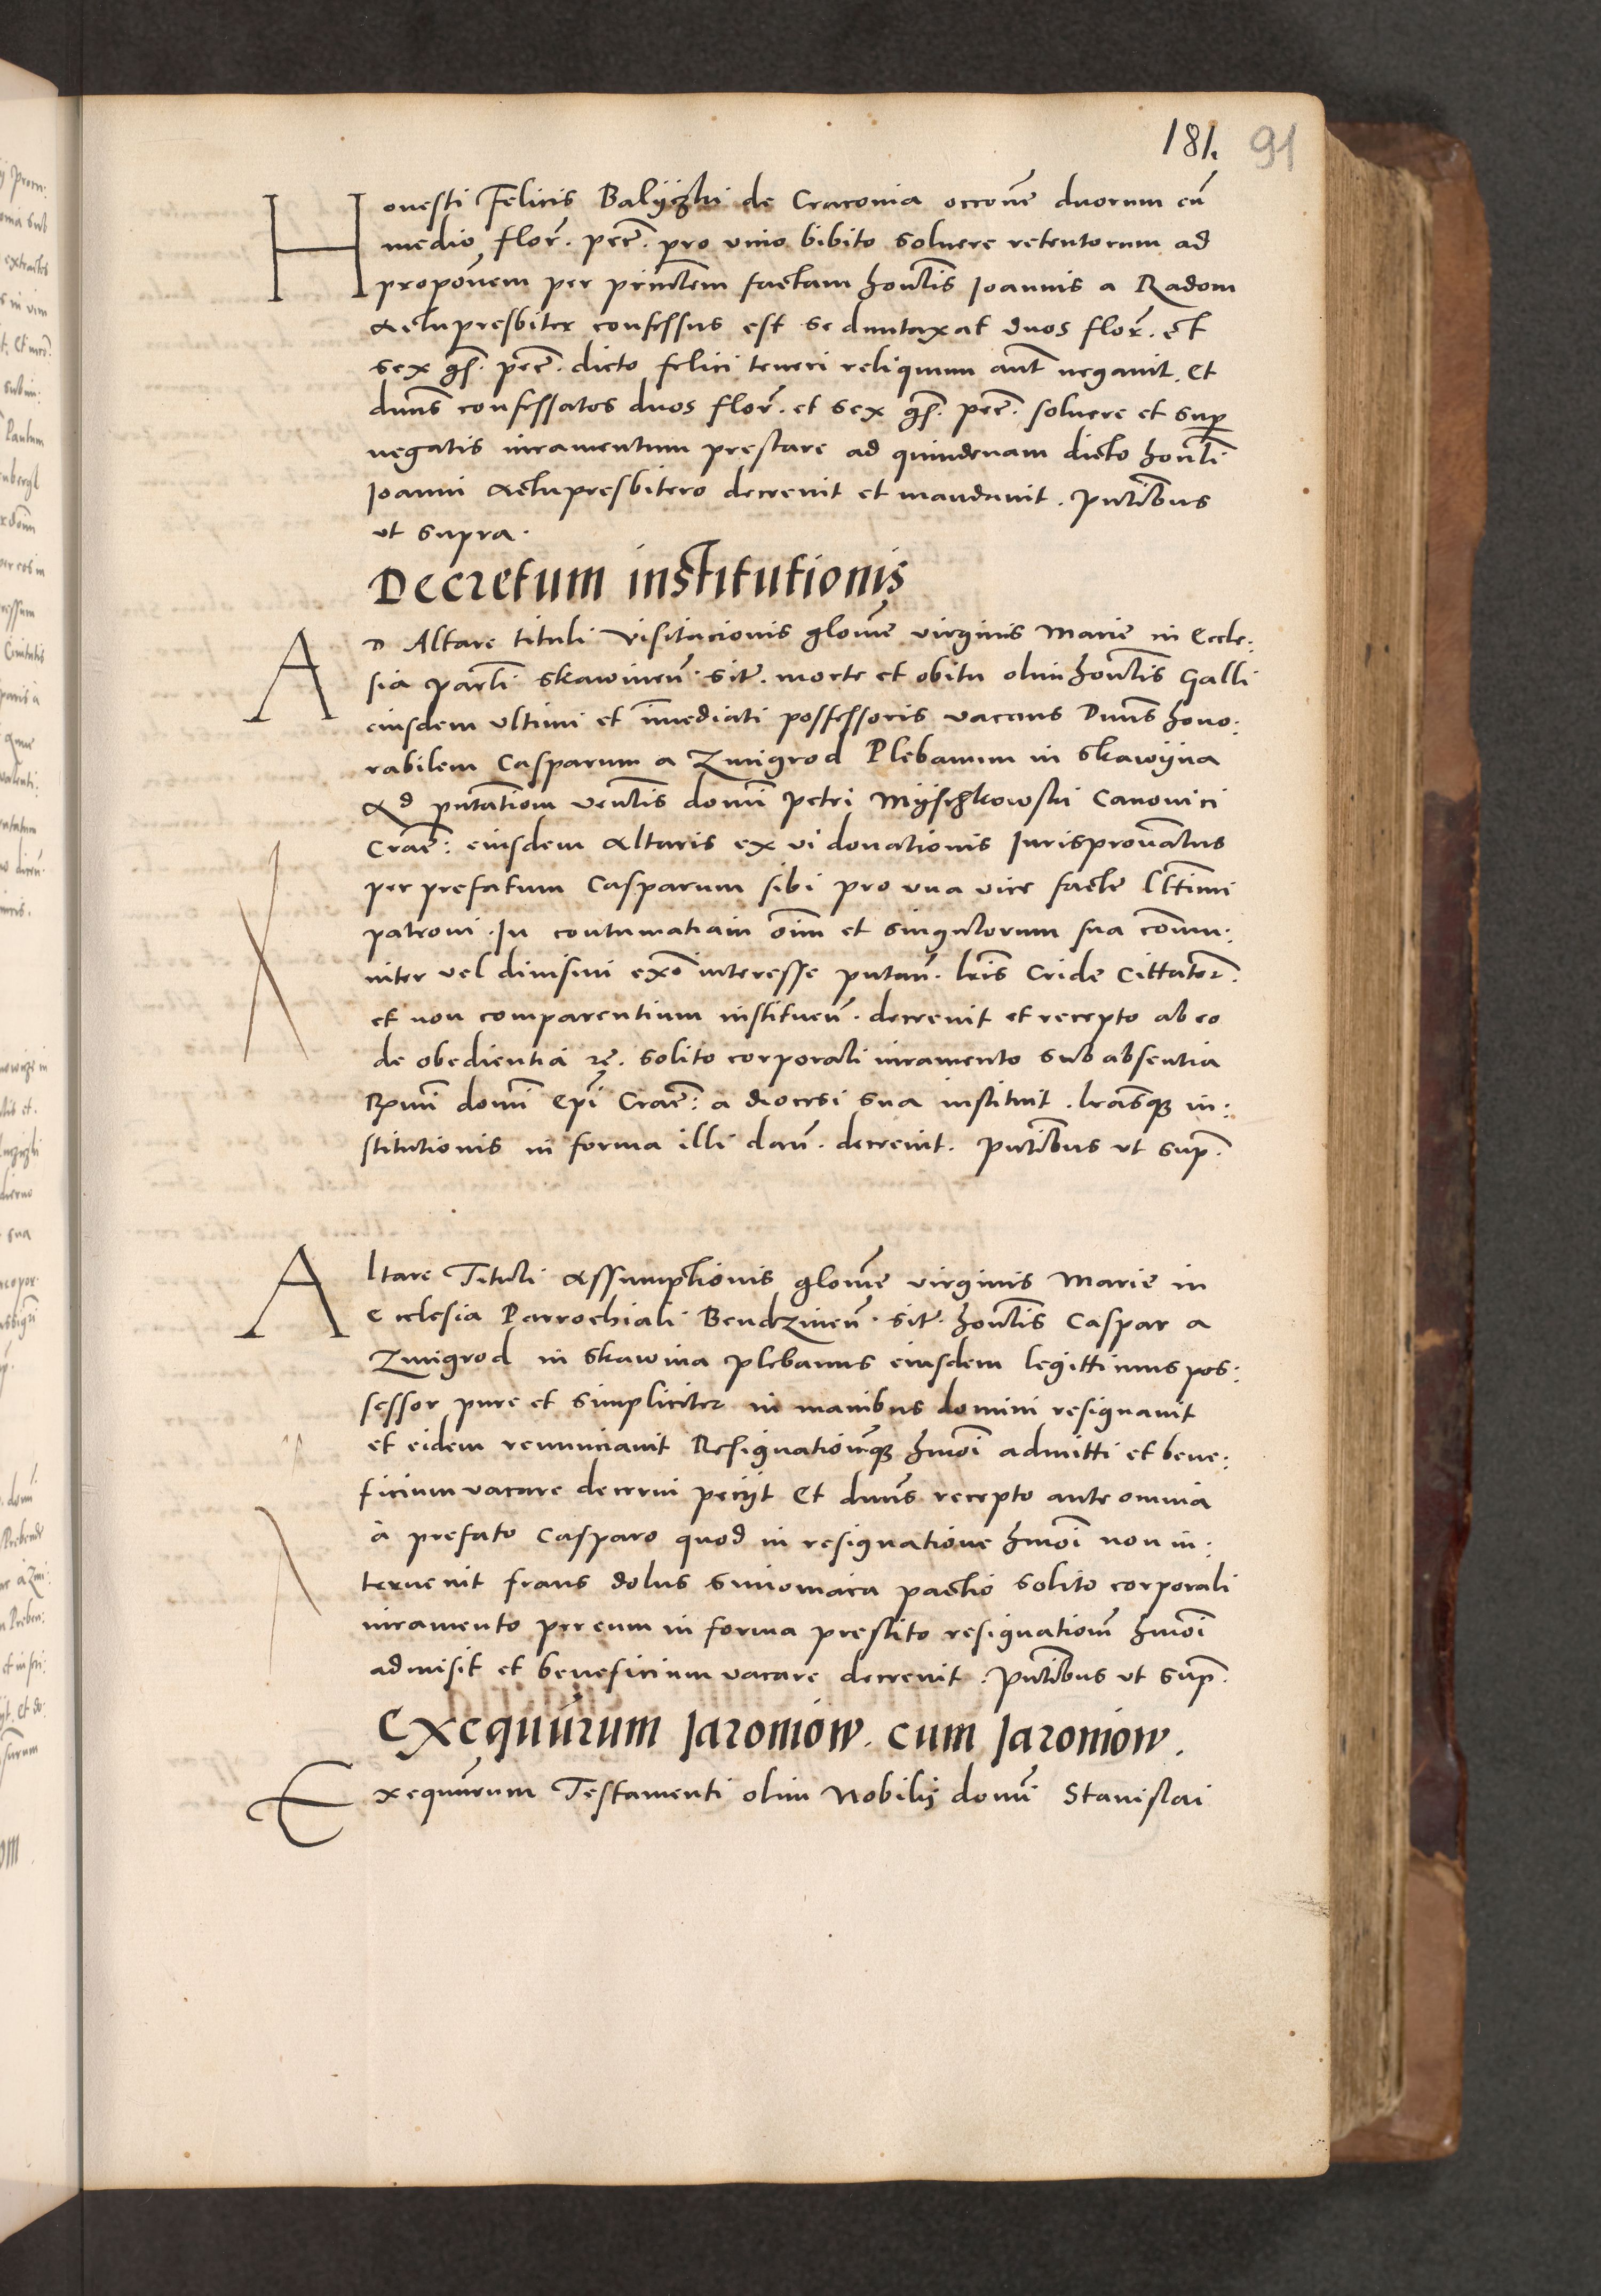 181. 91
Honesti Felicis Balijczki de Cracovia occōne duorum cū
medio flor̄. pec̄. pro vino bibito soluere retentorum ad
propōnem per princtēm factam hōntis Ioannis a Radom
Actupresbiter confessus est se duntaxat duos flor̄. et
sex gs̄. pec̄. dicto felici teneri reliquum aūt negauit. Et
dn̄us confessatos duos flor̄. et sex gs̄. pec̄. soluere et sup
negatis iuramentum prestare ad quindenam dicto hōnli
Ioanni Actupresbitero decreuit et mandauit. Pn̄tibus
vt supra.
Decretum institutionis
AD Altare tituli Visitacionis gloriōse virginis Marie in Eccle:
sia par̄li Skawinen̄. sit̄. morte et obitu olim hōntis Galli
eiusdem vltimi et īmediati possessoris vacans Dn̄us hono:
rabilem Casparum a Zmigrod Plebanum in Skawijna
Ad pn̄tātiom ven̄lis domī Petri Mijschkowski Canonici
Crac̄: eiusdem Altaris ex vi donationis Iurisprōnatus
per prefatum Casparum sibi pro vna vice facte lt̄timi
patroni. In contumatiam oīm et singulorum sua cōmu:
niter vel diuisim exō interesse putan̄. lr̄is Cride Cittator̄.
et non comparentium instituen̄. decreuit et recepto ab eo
de obedientia zc̄. solito corporali iuramento sub absentia
Rx̄mi domī Epī Crac̄: a diocesi sua instituit. lr̄asq̄ in:
stitutionis in forma illi dan̄. decreuit. Pn̄tibus vt sup̄.
Altare Tituli Assumptionis gloriōse virginis Marie in
Ecclesia Parrochiali Bendzinen̄. sit̄. hōntis Caspar a
Zmigrod in Skawina plebanus eiusdem legittimus pos:
sessor pure et simpliciter in manibus domini resignauit
et eidem renunciauit Resignationēq̄ hmōi admitti et bene:
ficium vacare decerni peciit Et dn̄us recepto ante omnia
à prefato Casparo quod in resignatione hmōi non in:
teruenit fraus dolus simoniaca pactio solito corporali
iuramento per eum in forma prestito resignationē hmōi
admisit et beneficium vacare decreuit. Pn̄tibus vt sup̄.
Exequūrum Jaroniow. cum Jaroniow.
Exequūrum Testamenti olim Nobilis domī Stanislai